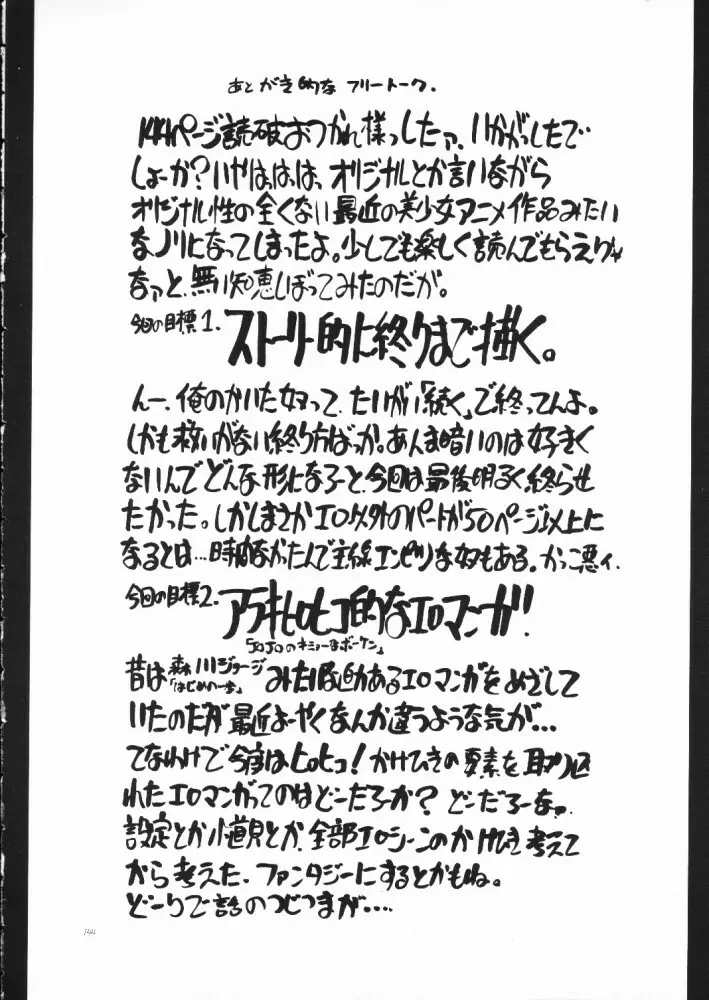 あとがき的な フリートーク.
144ページ読破おつかれ様っしたァ、いかがっしたで
しょーか?いやはっはっはっ、オリジナルとか言いながら
オリジナル性の全くない最近の美少女アニメ作品みたい
なノリになってしまったよ。少しでも楽しく読んでもらえりゃ
なァっと、無い知恵しぼってみたのだが。
今回の目標1. ストーリー的に終りまで描く。
んー、俺のかいた奴って、たいがい「続く」で終ってんよ。
しかも救いがない終り方ばっか。あんま暗いのは好きく
ないんでどんな形になろーと、今回は最後明るく終らせ
たかった。しかしまさかエロ以外のパートが50ページ以上に
なるとは…時間なかたんで主線エンピツな奴もある。かっこ悪ィ.
今回の目標2. アラキヒロヒコ的なエロマンガ!
「JoJoのキミョーなボーケン」
昔は森川ジョージみたいな迫力あるエロマンガをめざして
「はじめの一歩」
いたのだが最近よーやくなんか違うような気が…
てなわけで今度はヒロヒコ!かけひきの要素を取り込
れたエロマンガってのはどーだろーか?どーだろーなァ.
設定とか小道具とか、全部エロシーンのかけひき考えて
から考えた、ファンタジーにするとかもね。
どーりで話のつじつまが‥‥
144